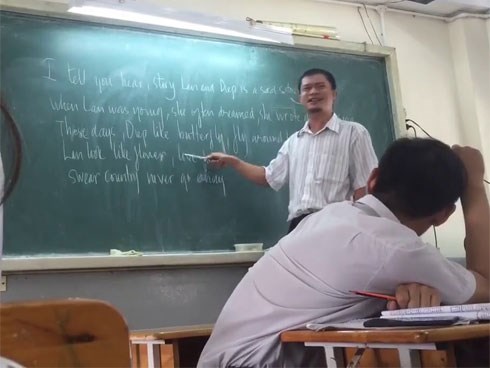 I tell you hear, story Lan and Diep is a sad
when Lan was young, she often dreamed she wrote
Those days, Diep like butterfly fly around
Lan look like flower,
swear country never go